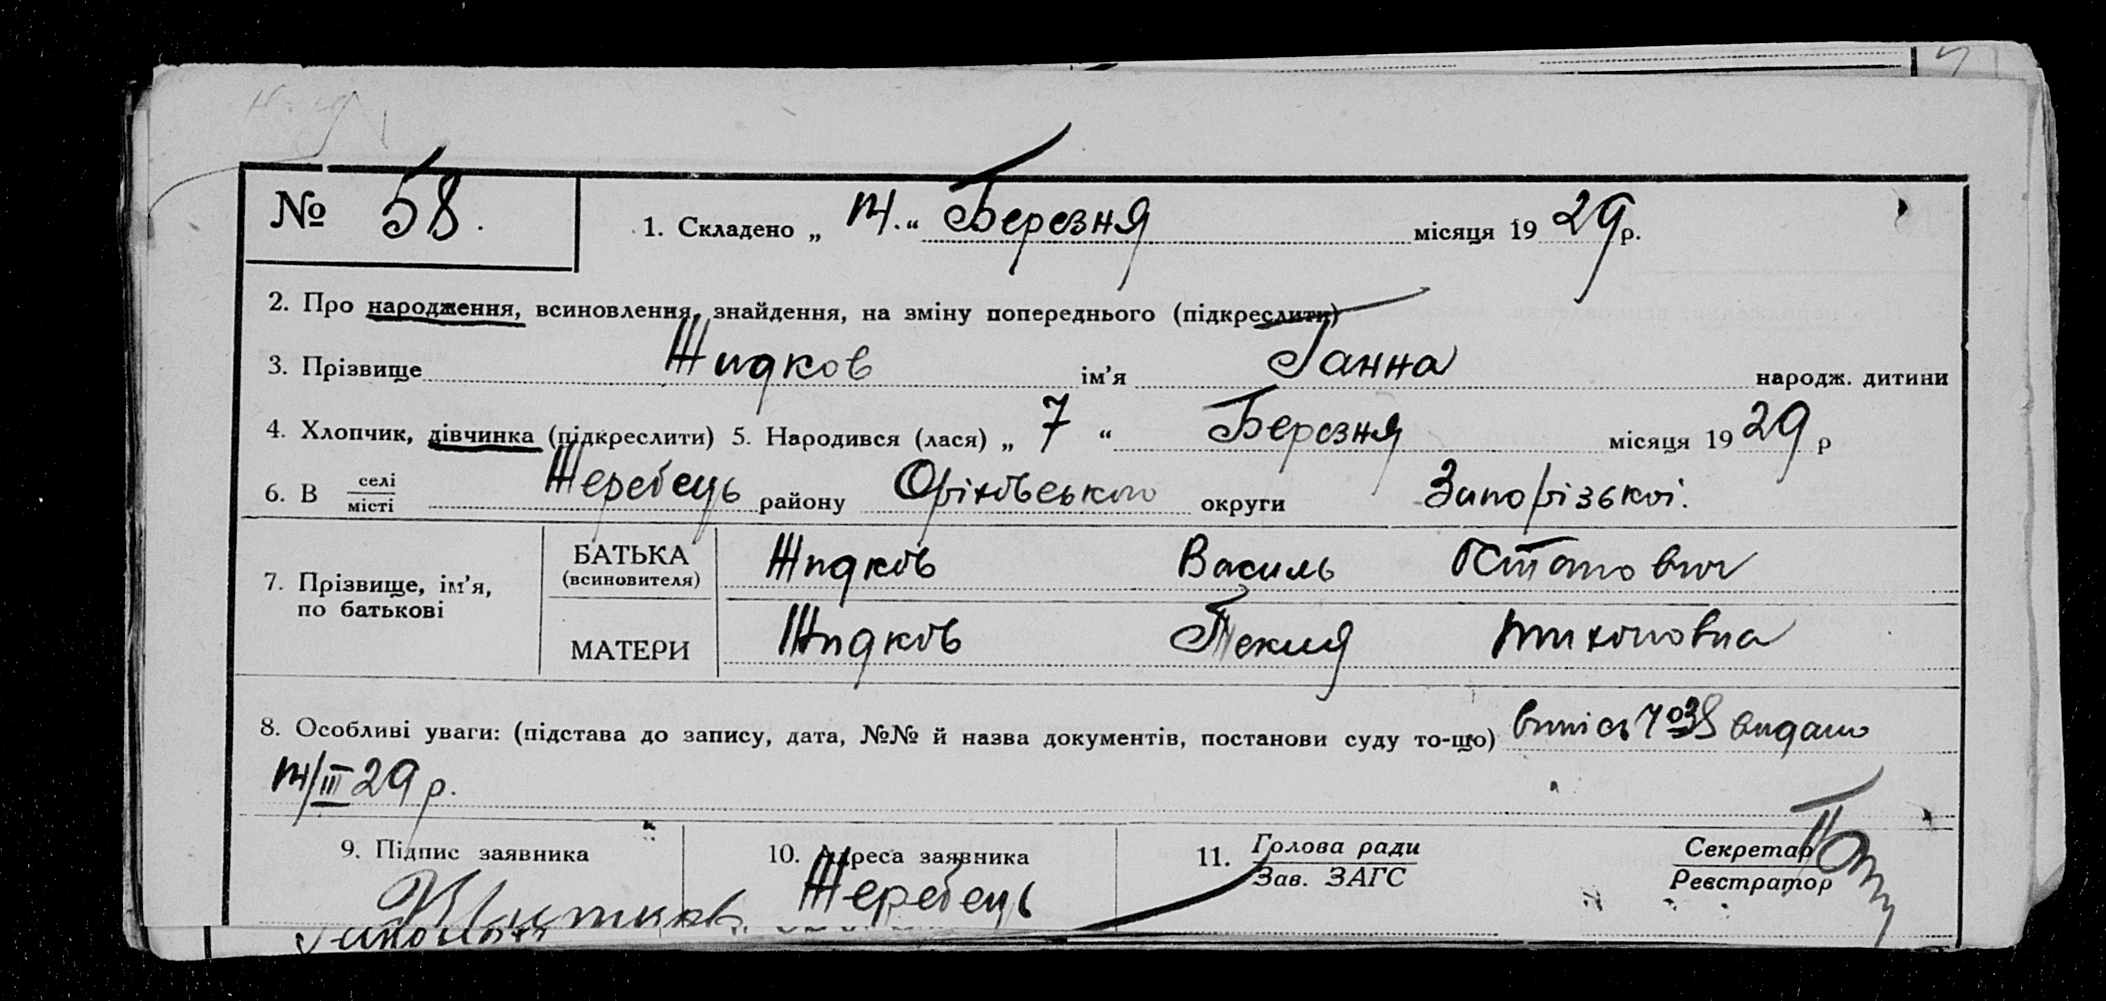 № 58.
1. Складено „ 14. “ Березня місяця 19 29 р.
2. Про народження, всиновлення, знайдення, на зміну попереднього (підкреслити)
3. Прізвище Жидков ім’я Ганна народж. дитини
4. Хлопчик, дівчинка (підкреслити) 5. Народився (лася) „ 7 “ Березня місяця 19 29 р
6. В селі Жеребець району Оріхівського округи Запорізької.
місті
7. Прізвище, ім’я, по батькові
БАТЬКА (всиновителя) Жидків Василь
МАТЕРИ Жидків Текля Тихоновна
8. Особливі уваги: (підстава до запису, дата, №№ й назва документів, постанови суду то-що) видано
14/III 29 р.
9. Підпис заявника 10. Адреса заявника 11. Голова ради Секретар
Зав. ЗАГС Реєстратор
Жеребець